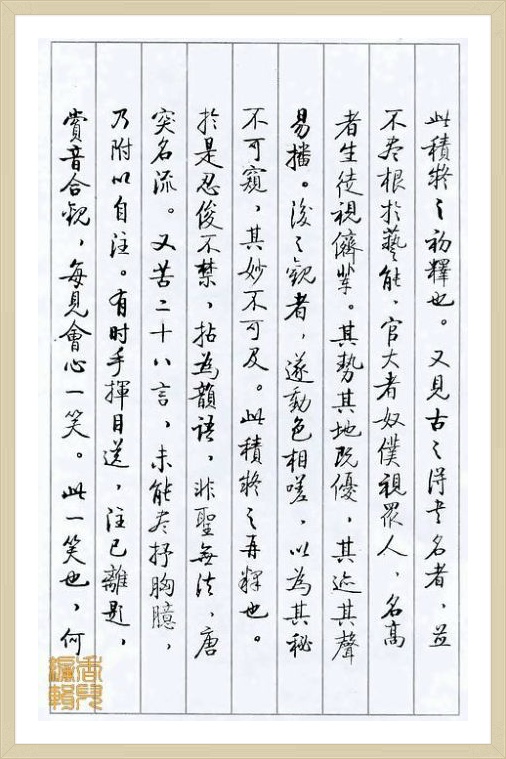 此積疑之初釋也。又見古之得書名者，並
不盡根於藝能，官大者奴僕視眾人，名高
者生徒視儕輩。其勢其地既優，其跡其聲
易播。後之觀者，遂動色相嗟，以為其秘
不可窺，其妙不可及。此積疑之再釋也。
於是忍俊不禁，拈為韻語，非聖無法，唐
突名流。又苦二十八言，未能盡抒胸臆，
乃附以自注。有時手揮目送，注已離題，
賞音合觀，每見會心一笑。此一笑也，何